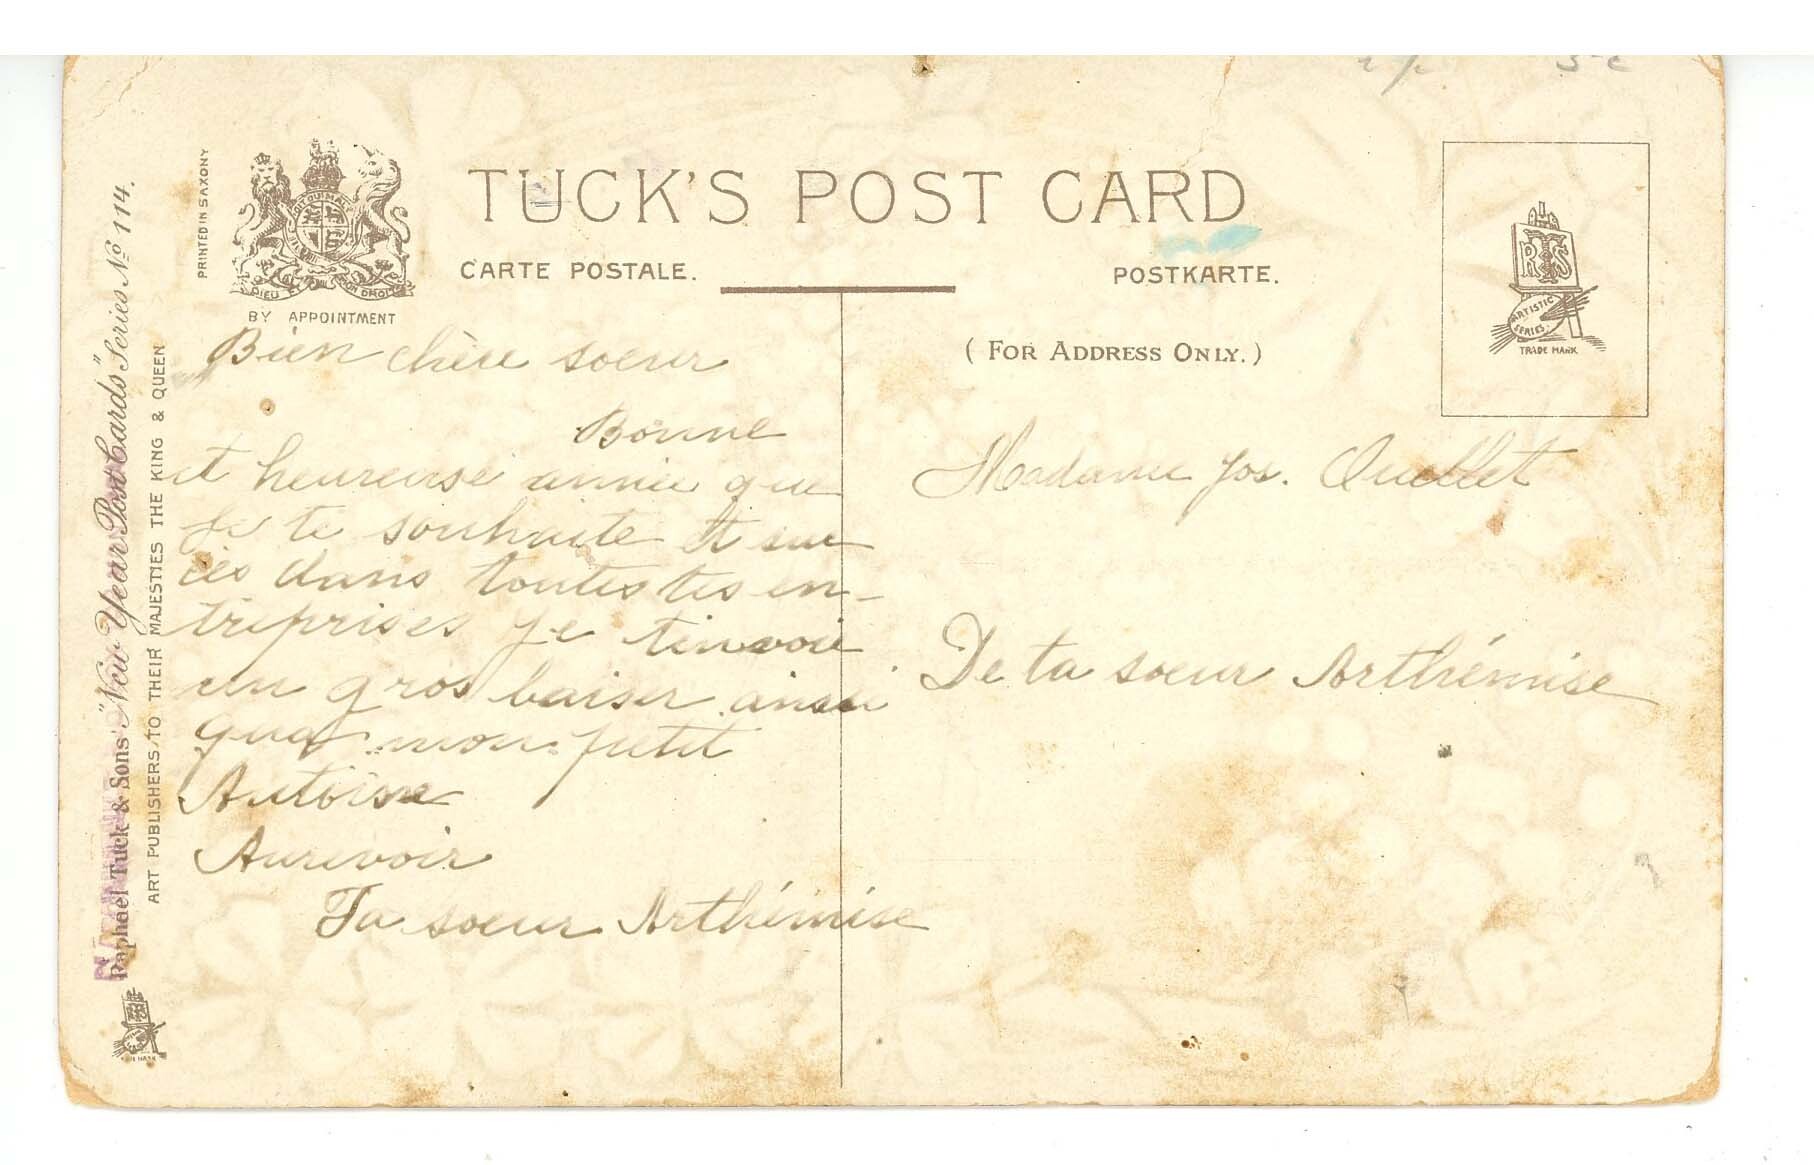 TUCK'S POST CARD
CARTE POSTALE.
POSTKARTE.
BY APPOINTMENT
DIEU ET MON DROIT
(FOR ADDRESS ONLY.)
RTS
ARTISTIC
SERIES.
TRADE MARK
PRINTED IN SAXONY
Raphael Tuck & Sons' "New Year Post Cards" Series No 114.
ART PUBLISHERS TO THEIR MAJESTIES THE KING & QUEEN
Bien chère soeur
Bonne
et heureuse année que
Je te souhaite et suc
cès dans toutes tes en-
treprises Je tenvoie
un gros baiser ainsi
que mon petit
Antoine
Aurevoir
Ta soeur Arthémise
Madame Jos. Ouellet
De ta soeur Arthémise